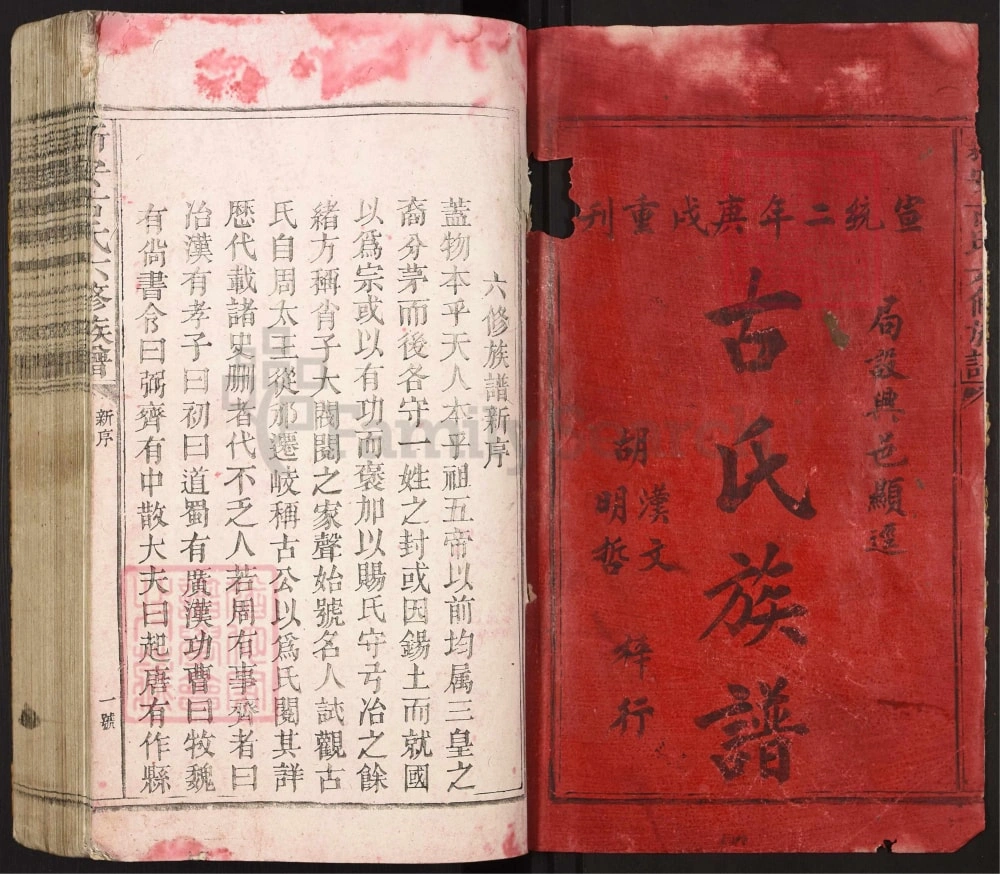 宣統二年庚戌重刊
局設興邑顯逕
古氏族譜
胡漢文
明哲
梓行
六修族譜新序
蓋物本乎天人本乎祖五帝以前均属三皇之
裔分茅而後各守一姓之封或因錫土而就國
以爲宗或以有功而褒加以賜氏守弓冶之餘
緒方稱肖子大閥閱之家聲始號名人試觀古
氏自周太王從邠遷岐稱古公以爲氏閱其詳
歷代載諸史册者代不乏人若周有事齊者曰
冶漢有孝子曰初曰道蜀有廣漢功曹曰牧魏
有尙書令曰弼齊有中散大夫曰起唐有作縣
古氏六修族譜
新序
一號
FamilySearch